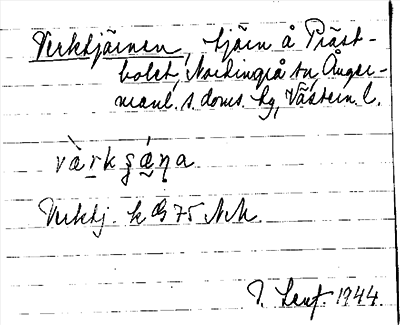 Verktjärnen, tjärn å Präst-
bolet, Nordingrå sn, Ånger-
manl. s. doms. tg, Västern. l.
va̍rkʒá̱ŋa
Verktj. k G 75 NM.
J. Leuf. 1944.